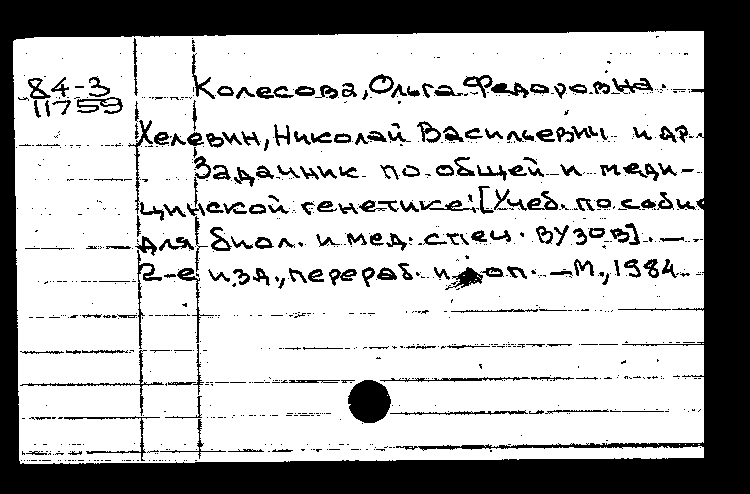 84-3 Колесова, Ольга Федоровна.
11759
Хелевин, Николай Васильевич и др.
Задачник по общей и меди-
цинской генетике: [Учеб. пособие
для биол. и мед. спец. вузов]. —
2-е изд., перераб. и доп. — М., 1984.